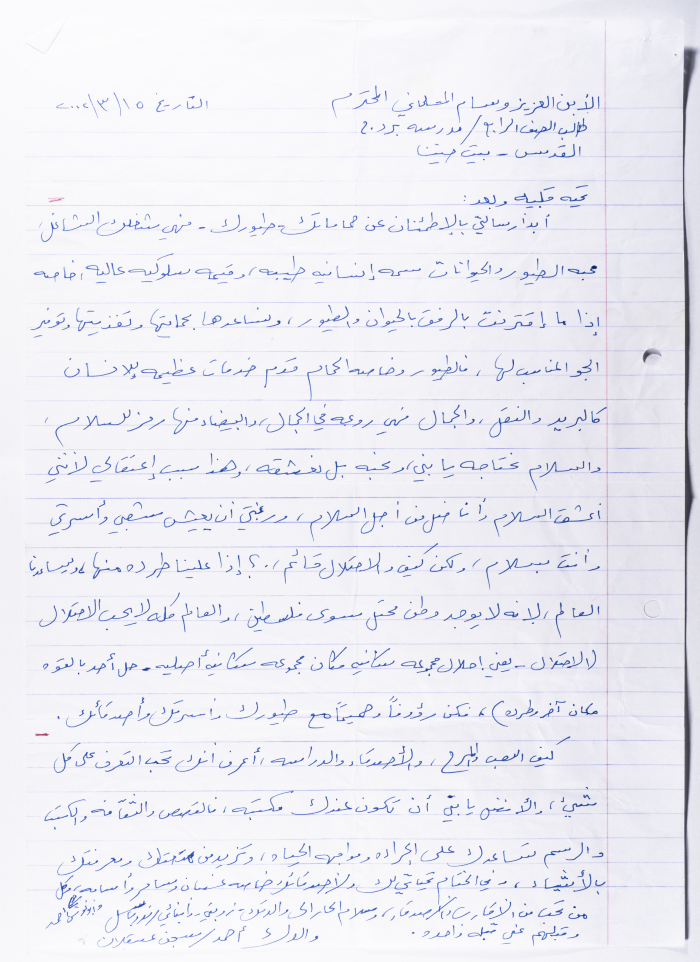 الأبن العزيز وسام المحترم التاريخ ١٥/٣/٢٠٠٢
طالب الصف الرابع/مدرسة
القدس - بيت حنينا
تحيه قلبيه وبعد:
أبدأ رسالتي بالإطمئنان عن حماماتك وطيورك - فهي شغلك الشاغل،
محبة الطيور والحيوانات سمه إنسانيه طيبه، وقيمه سلوكيه عاليه، خاصه
إذا ما إقترنت بالرفق بالحيوان والطيور، ونساعدها بحمايتها وتغذيتها وتوفير
الجو المناسب لها، فالطيور وخاصه الحمام قدم خدمات عظيمه للإنسان
كالبريد والنقل، والجمال فهي روعه في الجمال، والبيضاء منها رمز للسلام،
والسلام نحتاجه يا بني، ونحبه بل نعشقه، وهذا سبب إعتقالي لأنني
أعشق السلام وأناضل من أجل السلام، ورغبتي أن يعيش شعبي وأسرتي
وأنت بسلام، ولكن كيف والاحتلال قائم،.؟ إذا علينا طرده منها، وليساعدنا
العالم، لانه لا يوجد وطن محتل سوى فلسطين، والعالم كله لا يحب الاحتلال
(الاحتلال - يعني إحلال مجموعه سكانيه مكان مجموعه سكانيه أصليه - حل أحد بالقوه
مكان آخر وطرده)، فكن رؤوفاً وحميماً مع طيورك وأسرتك وأصدقائك.
كيف اللعب والمرح، والأصدقاء والدراسه، أعرف أنك تحب التعرف على كل
شيئ، والأفضل يا بني أن تكون عندك مكتبه، فالقصص والثقافه والكتب
والرسم تساعدك على القراءه ومواجهه الحياه، وتزيد من ثقتك ومعرفتك
بالأشياء، وفي الختام تحياتي لك ولأصدقائك خاصه غسان وسامر وأسامه، وكل
من تحب من الأقارب والأصدقاء، وسلام حار الى والدتك
وقبلهم عني قبله واحده. والدك أحمد/سجن عسقلان